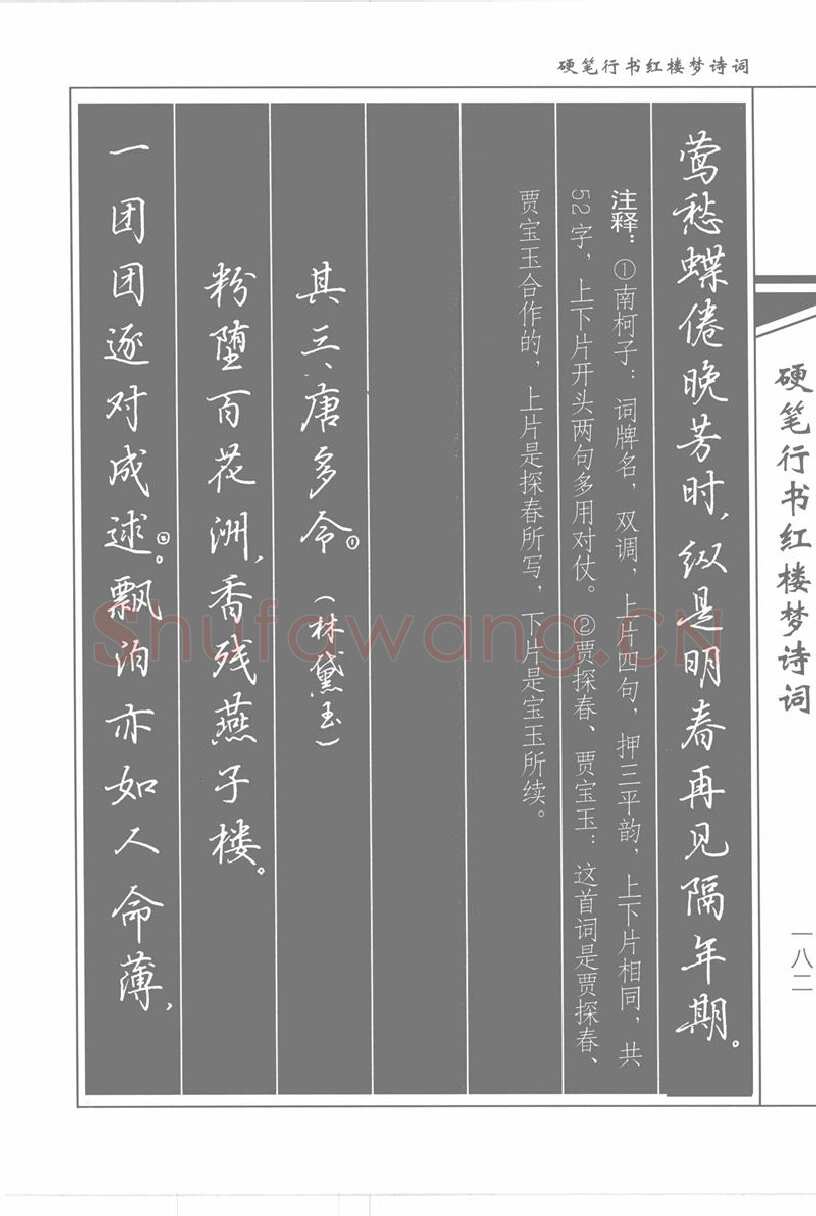 硬笔行书红楼梦诗词
莺愁蝶倦晚芳时，纵是明春再见隔年期。
注释：①南柯子：词牌名，双调，上片四句，押三平韵，上下片相同，共
52字，上下片开头两句多用对仗。②贾探春、贾宝玉：这首词是贾探春、
贾宝玉合作的，上片是探春所写，下片是宝玉所续。
其三、唐多令①（林黛玉）
粉堕百花洲，香残燕子楼。
一团团逐对成逑②。飘泊亦如人命薄，
硬笔行书红楼梦诗词
一八二
Shufawang.CN